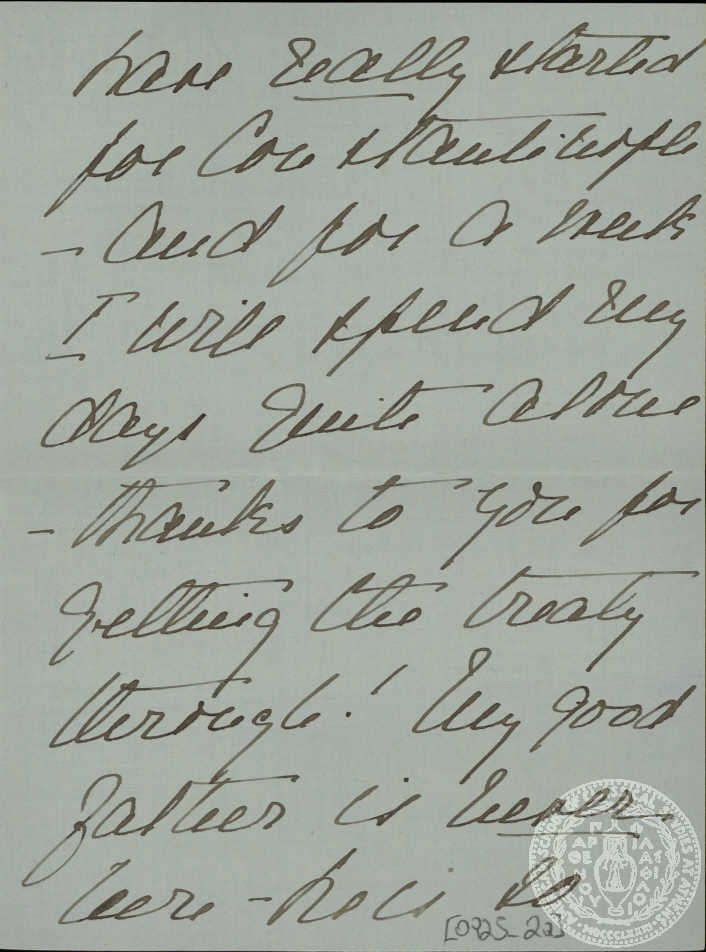 have really started
for Constantinople
- and for a week
I will spend my
days quite alone
- thanks to you for
getting the treaty
through! My good
father is never
here - he is so
[0925_22]